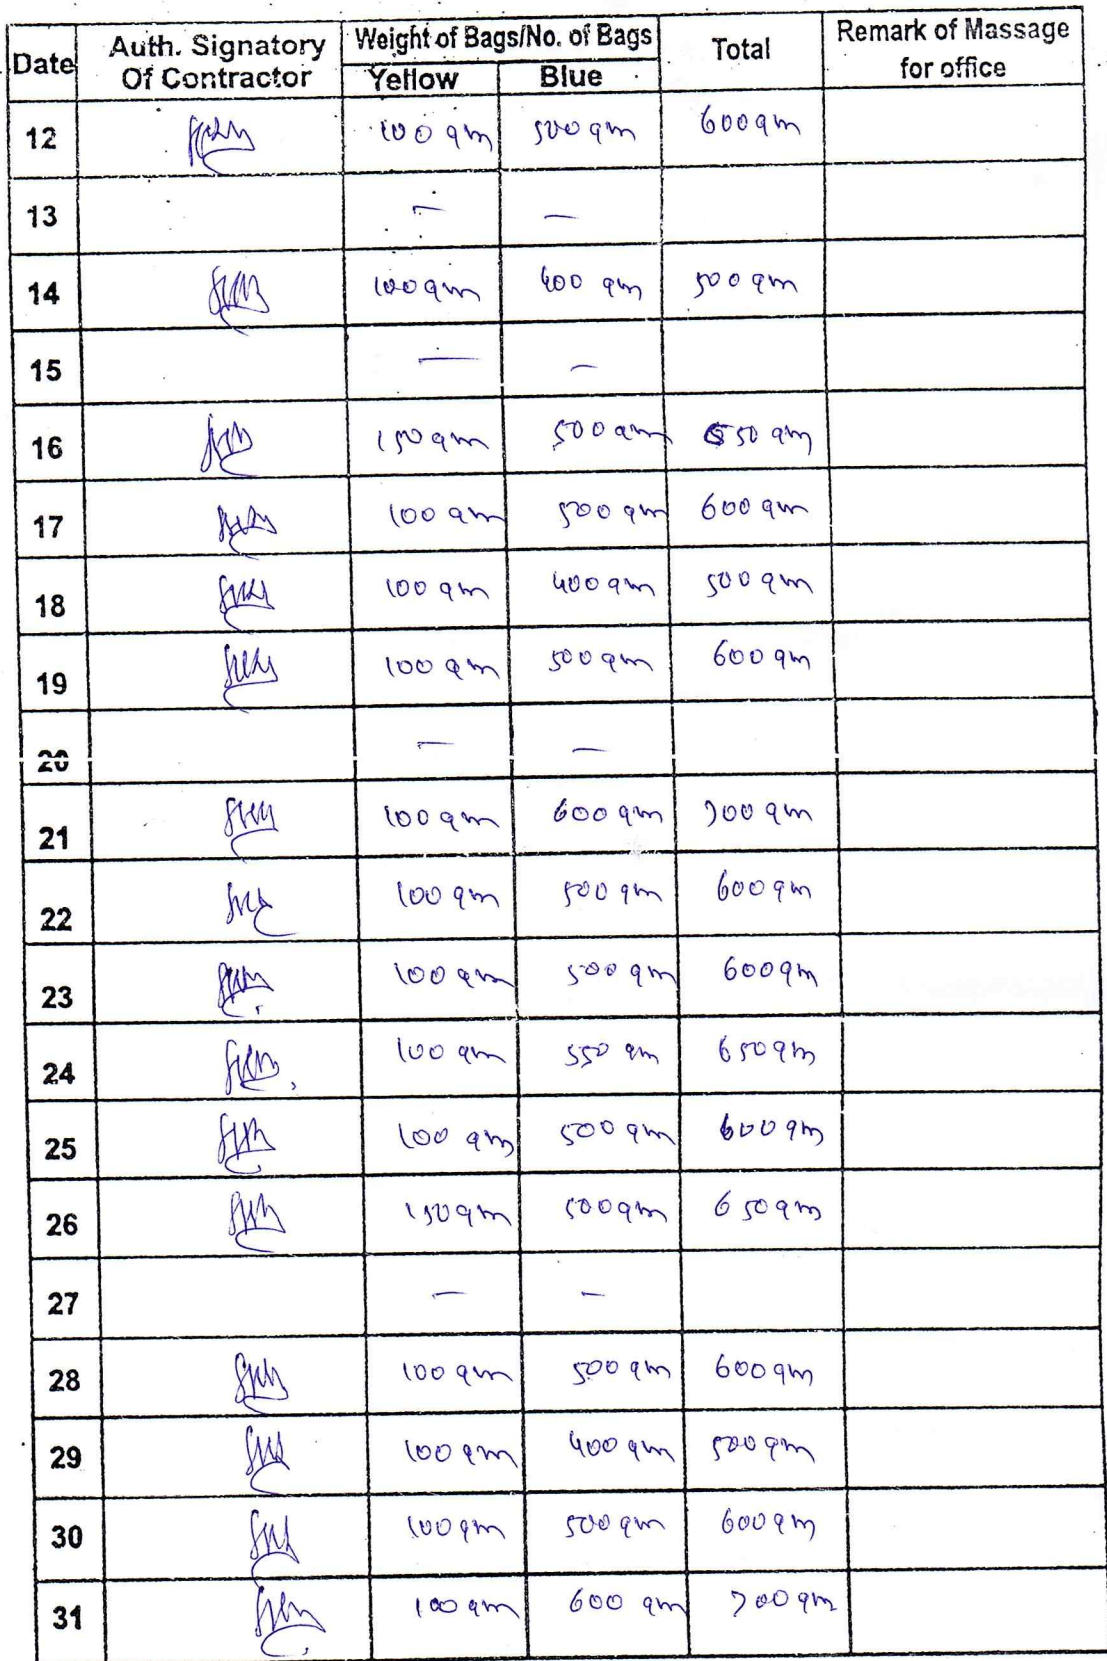 Date Auth. Signatory Of Contractor Weight of Bags/No. of Bags Yellow Blue Total Remark of Massage for office
12 100 gm 500 gm 600 gm
13 — —
14 100 gm 400 gm 500 gm
15 — —
16 150 gm 500 gm 650 gm
17 100 gm 500 gm 600 gm
18 100 gm 400 gm 500 gm
19 100 gm 500 gm 600 gm
20 — —
21 100 gm 600 gm 700 gm
22 100 gm 500 gm 600 gm
23 100 gm 500 gm 600 gm
24 100 gm 550 gm 650 gm
25 100 gm 500 gm 600 gm
26 150 gm 500 gm 650 gm
27 — —
28 100 gm 500 gm 600 gm
29 100 gm 400 gm 500 gm
30 100 gm 500 gm 600 gm
31 100 gm 600 gm 700 gm